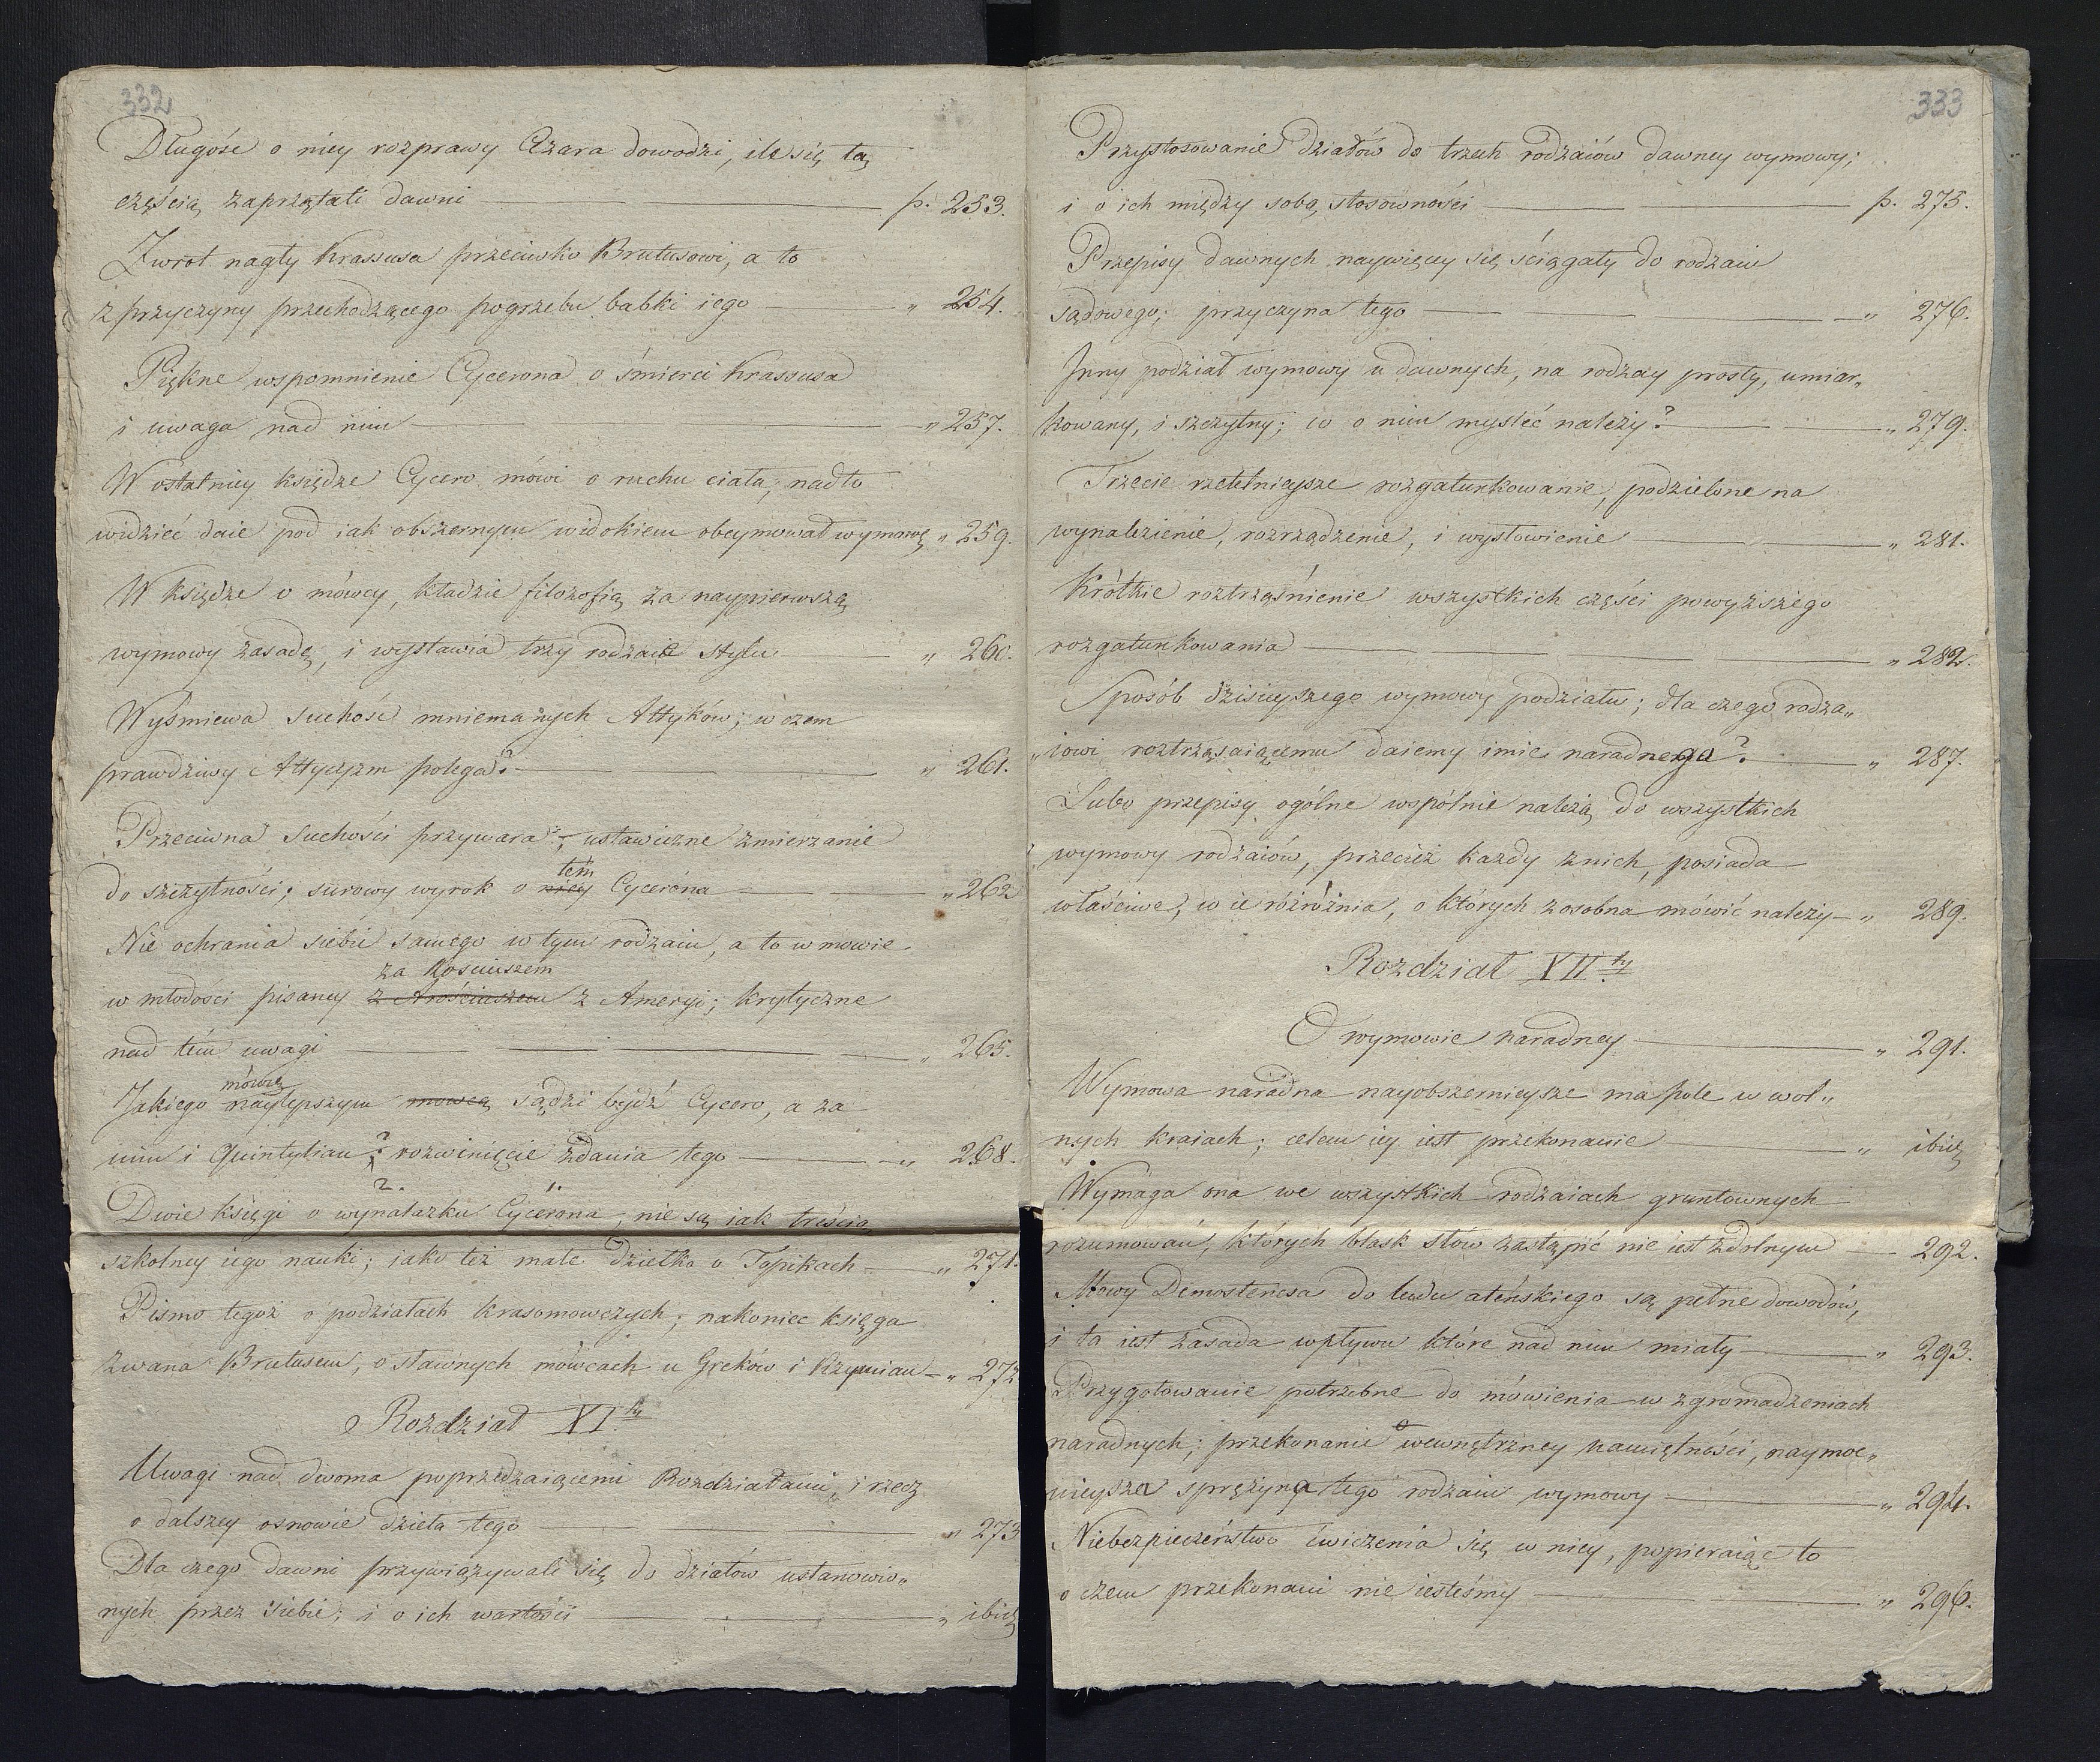 332
Długość o niey rozprawy Czara dowodzi, ile się tą
częścią zaprzątali dawni p. 253.
Zwrot nagły Krassusa przeciwko Brutusowi, a to
z przyczyny przechodzącego pogrzebu babki iego „ 254.
Piękne wspomnienie Cycerona o śmierci Krassusa
i uwaga nad nim „ 257.
W ostatniey księdze Cycero mówi o ruchu ciała, nadto
widzieć daie pod iak obszernym widokiem obeymował wymowę „ 259.
W księdze o mówcy, kładzie filozofią za naypierwszą
wymowy zasadę, i wystawia trzy rodzaie stylu „ 260.
Wyśmiewa suchość mniemanych Attyków; w czem
prawdziwy Attycyzm polega? „ 261.
Przeciwna suchości przywara; ustawiczne zmierzanie
tém
do szczytności; surowy wyrok o niey Cycerona „ 262
Nie ochrania siebie samego w tym rodzaiu, a to w mowie
za Rosciuszem
w młodości pisaney z Arościuszem z Ameryi; krytyczne
nad tém uwagi „ 265.
mówcą
Jakiego naylepszym mowcą sądzi bydź Cycero, a za
nim i Quintylian? rozwinięcie zdania tego „ 268.
2. 1.
Dwie księgi o wynalazku Cycerona, nie są iak treścią
szkolney iego nauki; iako też małe dziełko o Topikach „ 271.
Pismo tegoż o podziałach krasomowczych; nakoniec księga
zwana Brutusem, o sławnych mówcach u Greków i Rzymian „ 272
Rozdział XI.ty
Uwagi nad dwoma poprzedzaiącemi Rozdziałami, i rzecz
o dalszey osnowie dzieła tego „ 273
Dla czego dawni przywiązywali się do działów ustanowio„
nych przez siebie; i o ich wartości „ ibid
333
Przystosowanie działów do trzech rodzaiów dawney wymowy;
i o ich między sobą stosowności p. 275.
Przepisy dawnych naywięcey się ściągały do rodzaiu
sądowego; przyczyna tego „ 276.
Inny podział wymowy u dawnych, na rodzay prosty, umiar„
kowany, i szczytny; co o nim myśleć należy? „ 279.
Trzecie rzetelnieysze rozgatunkowanie, podzielone na
wynalezienie, rozrządzenie, i wysłowienie „ 281.
Krótkie roztrząśnienie wszystkich części powyższego
rozgatunkowania „ 282.
Sposób dzisieyszego wymowy podziału; dla czego rodza„
„iowi roztrząsaiącemu daiemy imie naradnego? „ 287.
Lubo przepisy ogólne wspólnie należą do wszystkich
wymowy rodzaiów, przecież każdy z nich, posiada
właściwe, co ie różróżnia, o których z osobna mówić należy „ 289.
Rozdział XII.ty
O wymowie naradney „ 291.
Wymowa naradna nayobszernieysze ma pole w wol„
nych kraiach; celem iey iest przekonanie „ ibid
Wymaga ona we wszystkich rodzaiach gruntownych
rozumowań, których blask słów zastąpić nie iest zdolnym 292.
Mowy Demostenesa do ludu ateńskiego są pełne dowodów,
i ta iest zasada wpływu które nad nim miały „ 293.
Przygotowanie potrzebne do mówienia w zgromadzeniach
naradnych; przekonanie o wewnętrzney namiętności, naymoc„
nieysza sprężyna tego rodzaiu wymowy „ 294.
Niebezpieczeństwo ćwiczenia się w niey, popieraiąc to
o czem przekonani nie iesteśmy „ 296.